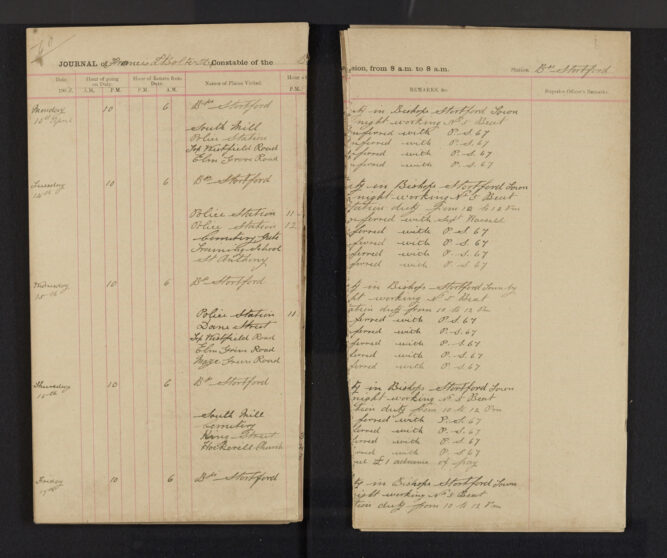 JOURNAL of Francis
Constable of the
Date.
190
Hour of going on Duty.
A.M. P.M.
Hour of Return from Duty.
P.M. A.M.
Names of Places Visited.
P.M.
Monday 10 6 Bp Stortford
April
South Mill
Police Station
Top Westfield Road
Elm Grove Road
Tuesday 10 6 Bp Stortford
14th
Police Station 11
Police Station 12
Cemetery Gate
School
St Anthony
Wednesday 10 6 Bp Stortford
15th
Police Station 11
Dane Street
Top Westfield Road
Elm Grove Road
Road
Thursday 10 6 Bp Stortford
South Mill
Cemetery
King Street
Hockerill Church
Friday 10 6 Bp Stortford
sion, from 8 a.m. to 8 a.m. Station Bp Stortford
REMARKS, &c. Superior Officer's Remarks.
ty in Bishops Stortford Town
night working No 5 Beat
nferred with P.S. 67
nferred with P.S. 67
nferred with P.S. 67
nferred with P.S. 67
ty in Bishops Stortford Town
night working No 5 Beat
tation duty from 12 to 12
nferred with Sept
ferred with P.S. 67
ferred with P.S. 67
ferred with P.S. 67
ferred with P.S. 67
ty in Bishops Stortford
ght working No 5 Beat
ation duty from 10 to 12
ferred with P.S. 67
ferred with P.S. 67
ferred with P.S. 67
ferred with P.S. 67
ferred with P.S. 67
ty in Bishops Stortford Town
night working No 5 Beat
tion duty from 10 to 12 Pm
ferred with P.S. 67
ferred with P.S. 67
ferred with P.S. 67
with P.S. 67
£1 advance of pay
ty in Bishops Stortford Town
night working No 5 Beat
tion duty from 10 to 12 Pm